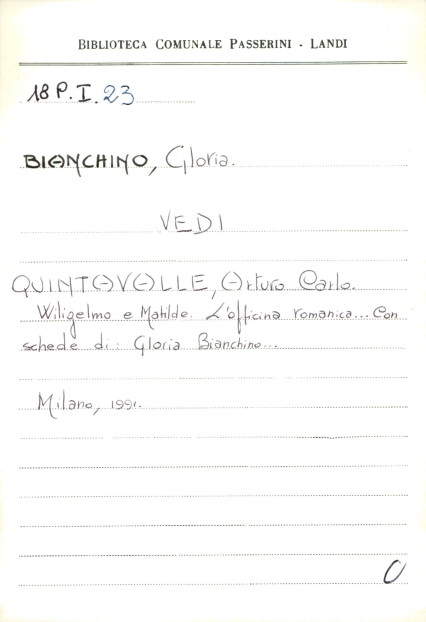 BIBLIOTECA COMUNALE PASSERINI - LANDI
18 P. I. 23
BIANCHINO, Gloria.
VEDI
QUINTAVALLE, Arturo Carlo.
Wiligelmo e Matilde. L'officina romanica... Con
schede di: Gloria Bianchino...
Milano, 1991.